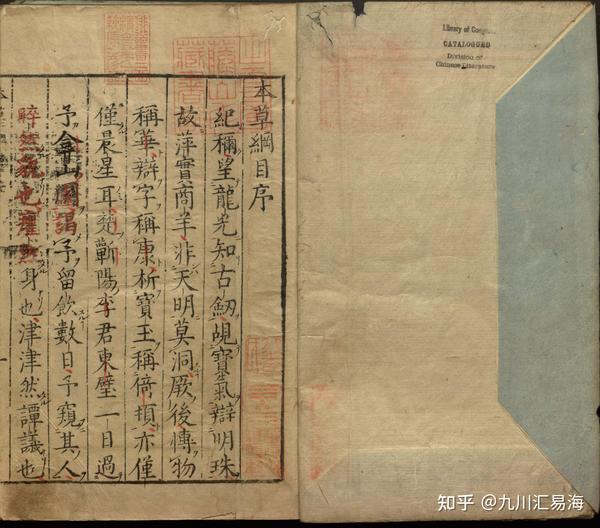 本草綱目序
紀稱望龍光知古劒覘寶氣辯明珠
故萍實商羊非天明莫洞厥後博物
稱華辯字稱康析寶玉稱倚頓亦僅
僅晨星耳楚蘄陽李君東壁一日過
予弇山園謁予留飲數日予窺其人
睟然貌也癯然身也津津然譚議也
Library of Congress
CATALOGUED
Division of
Chinese Literature
知乎 @九川汇易海